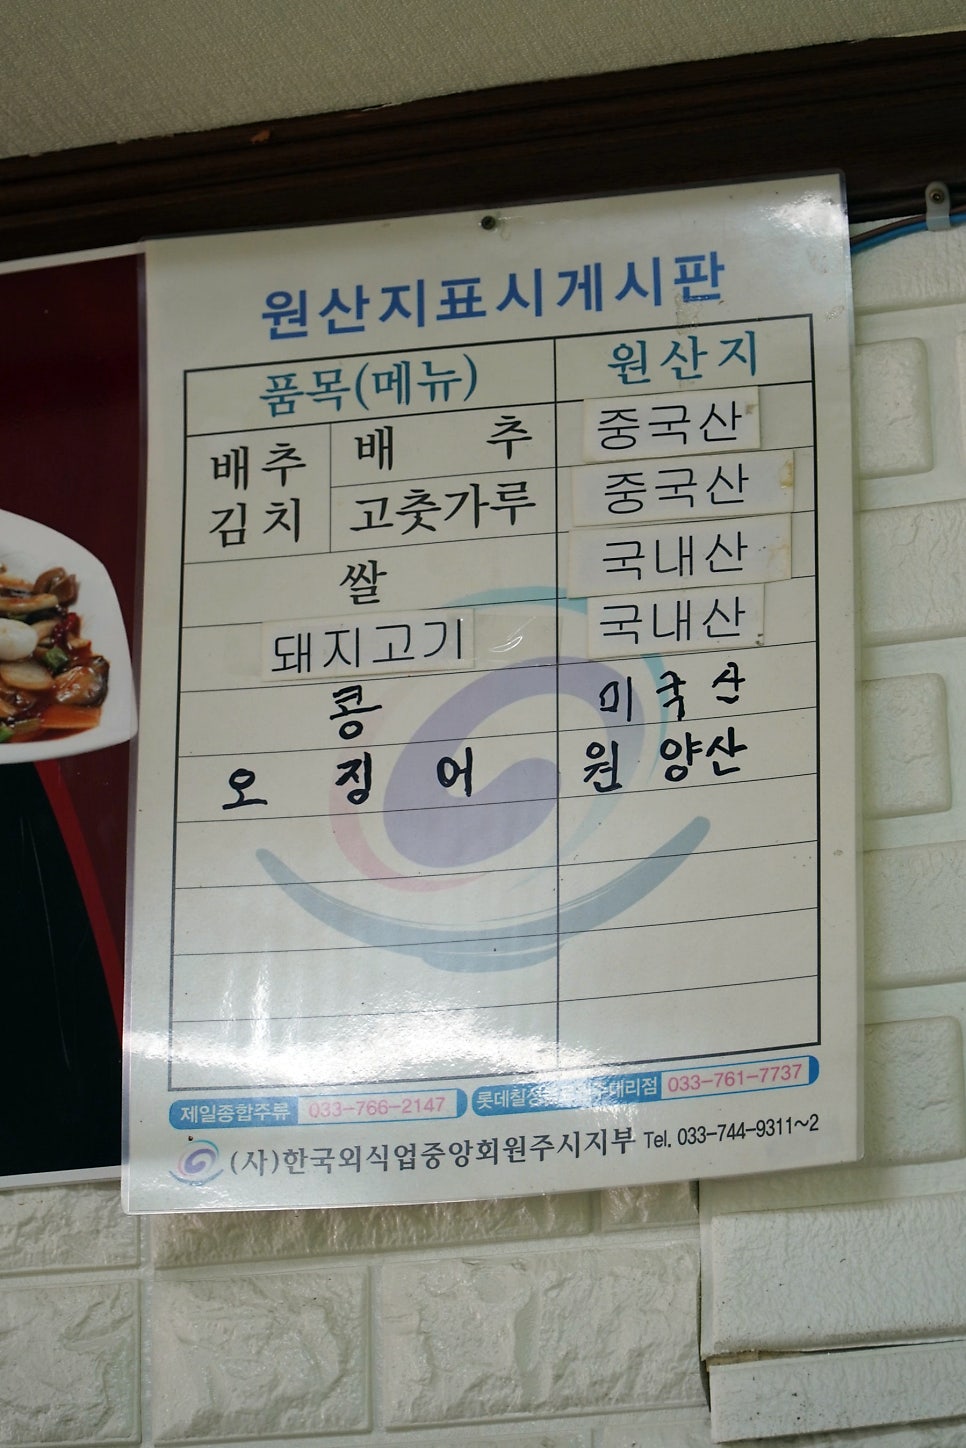 원산지표시게시판
품목(메뉴) 원산지
배추김치 배추 중국산
고춧가루 중국산
쌀 국내산
돼지고기 국내산
콩 미국산
오징어 원양산
제일종합주류 033-766-2147 033-761-7737
(사)한국외식업중앙회원주시지부 Tel. 033-744-9311~2